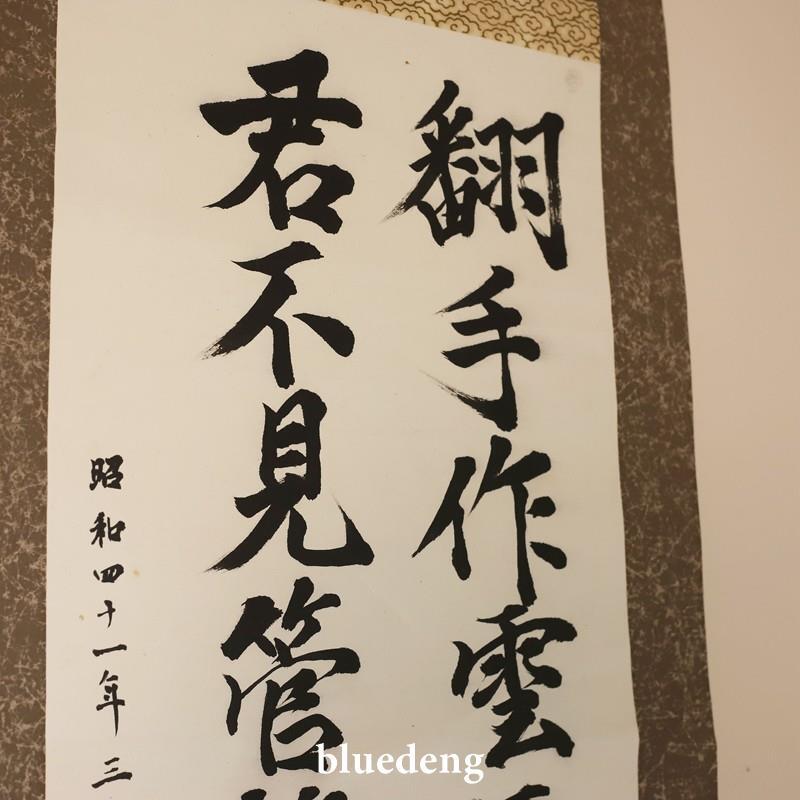 翻手作雲
君不見管
昭和四十一年三
bluedeng